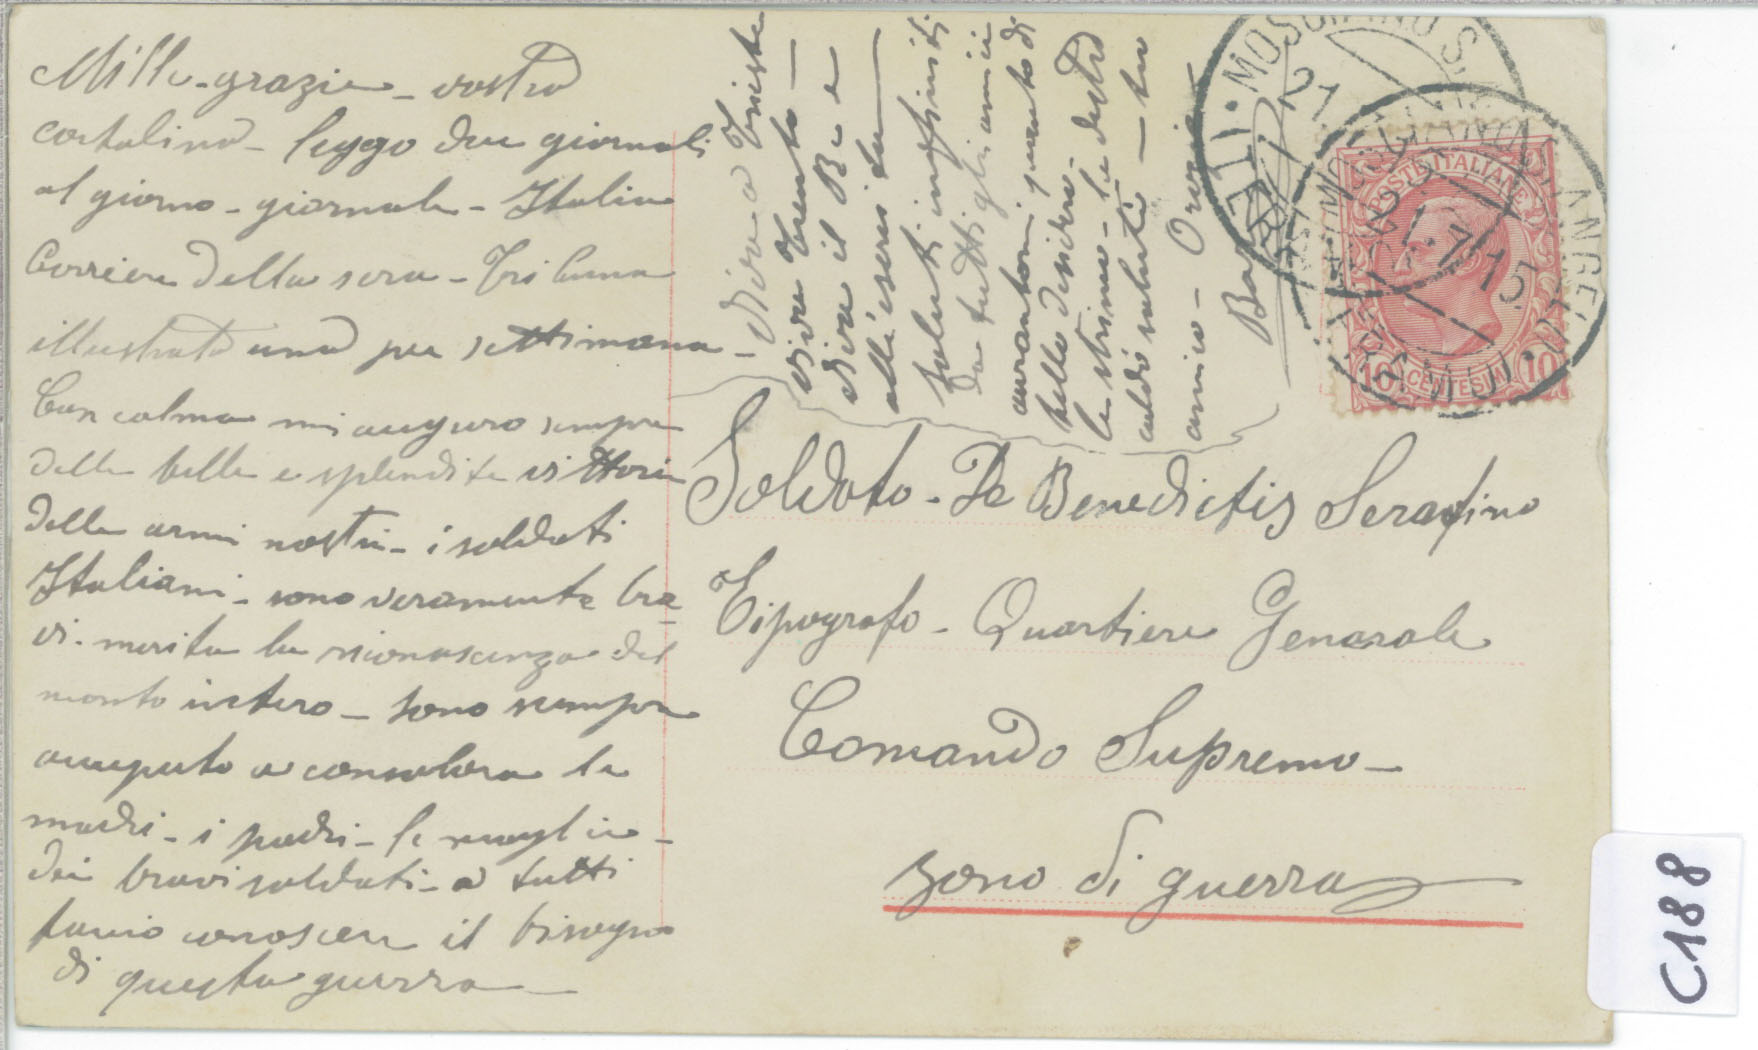 Mille - grazie - vostra
cartolina - leggo due giornali
al giorno - giornale - Italia
Corriere della sera - Tribuna
illustrata una per settimana -
Con calma mi auguro sempre
delle belle e splendite vittorie
delle armi nostre - i soldati
Italiani - sono veramente bra-
vi - merita la riconoscenza del
monto intero - sono sempre
a consolare le
madri - i padri - le moglie -
dei bravi soldati - a tutti
facio conoscere il bisogno
di questa guerra -
Viva Trieste
viva Trento -
Viva il Re e
all'esercito
saluti infiniti
da tutti gli amici
quanto di
bello desidera
le strime - la destra
caldi saluti - tuo
amico - Orazio
Soldato - De Benedictis Serafino
Tipografo - Quartiere Generale
Comando Supremo -
zona di guerra
MOSCIANO S.
TERAMO
21
MOSCIANO S. ANGELO
21.7.15
POSTE ITALIANE
10 CENTESIMI 10
C188